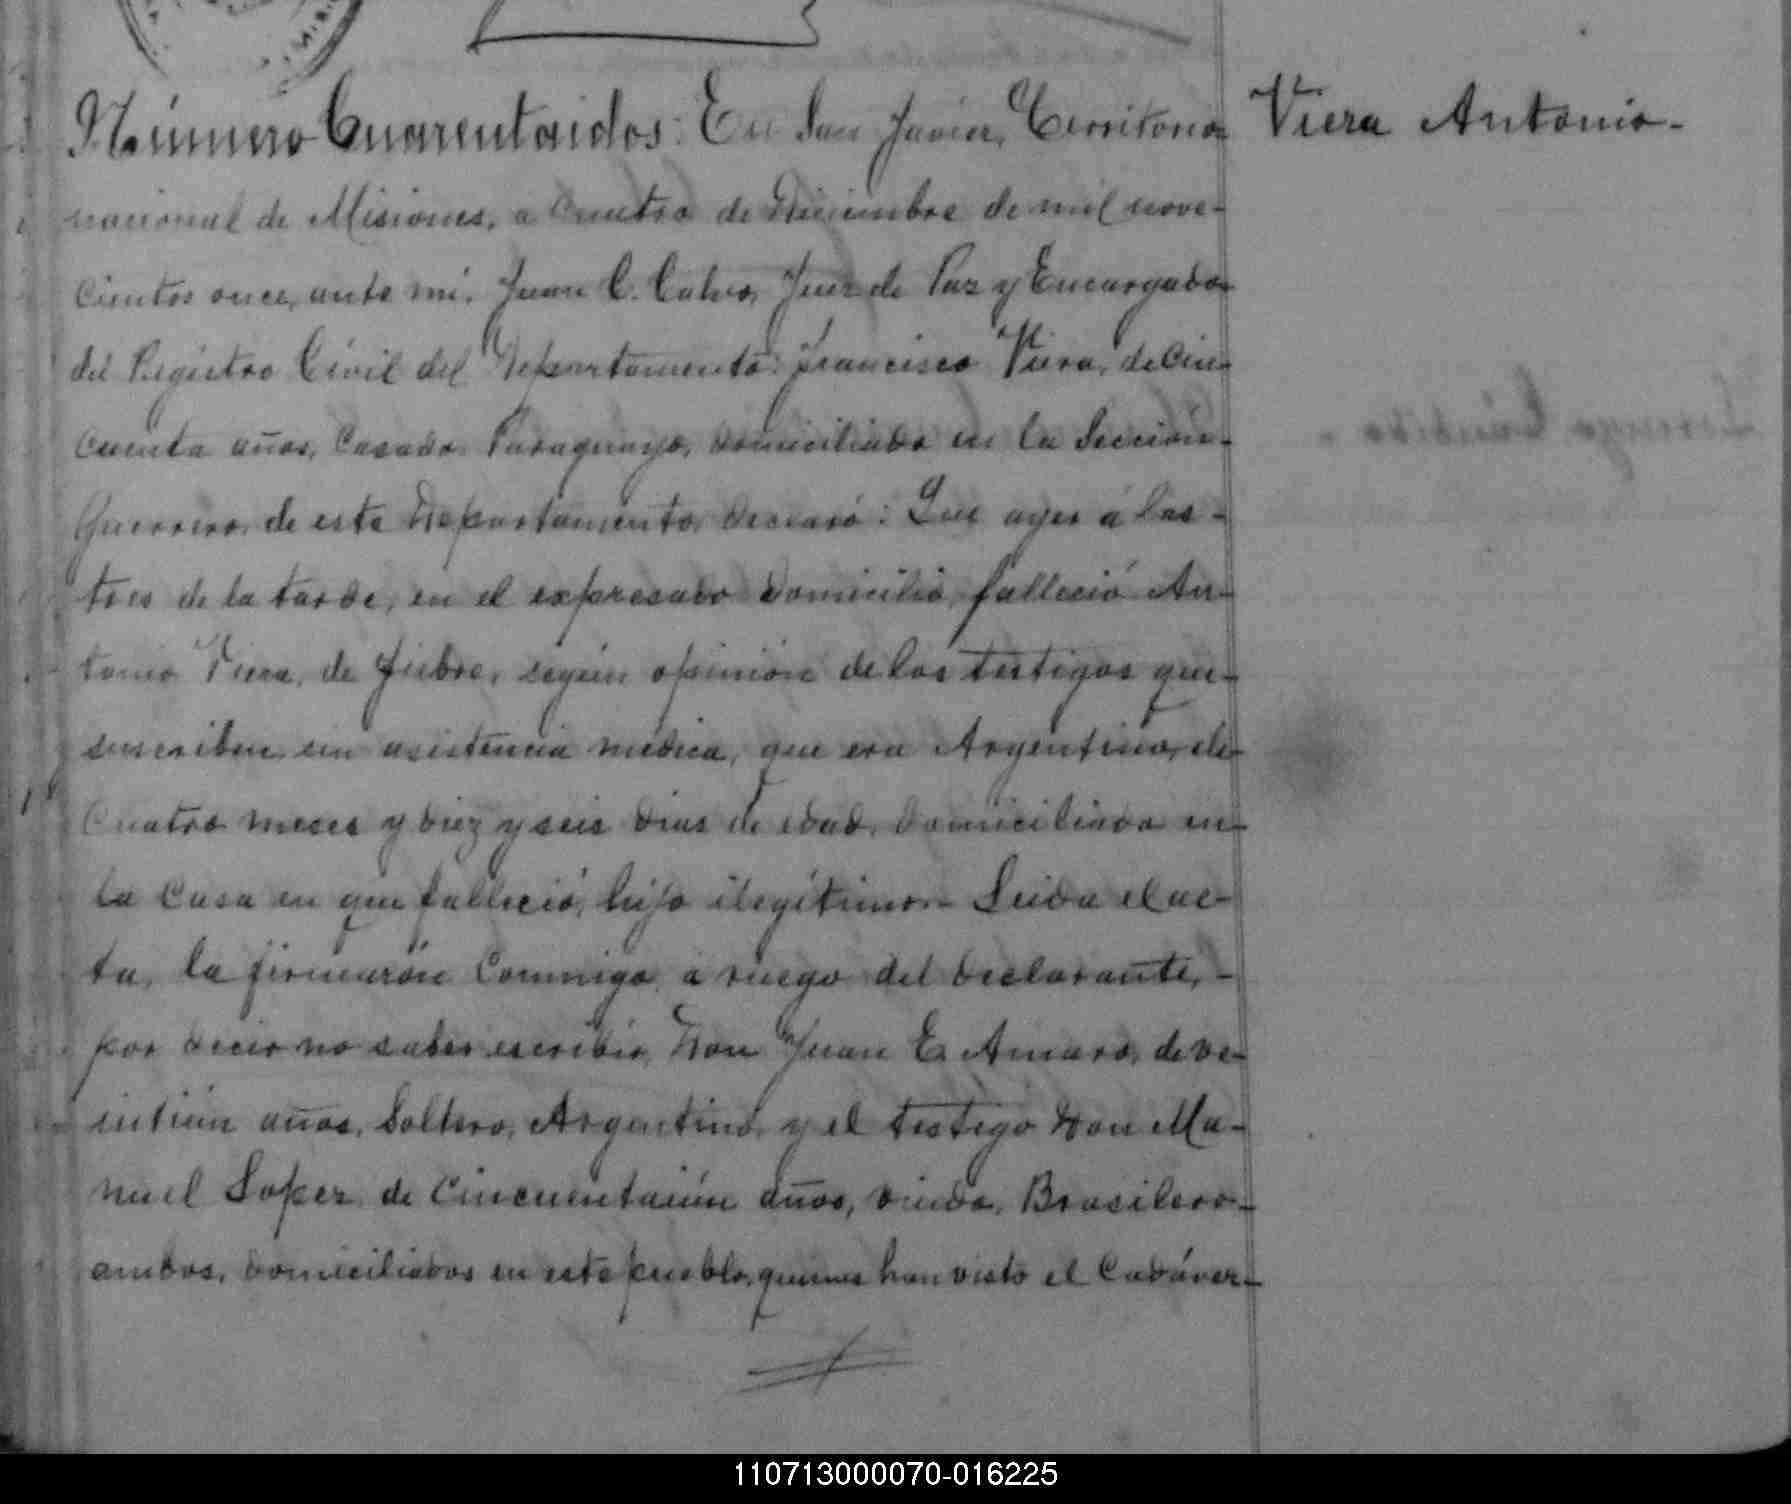 Número Cuarentaidos: En San Javier, Territorio Viera Antonio-
nacional de Misiones, a Cuatro de Diciembre de mil nove-
cientos once, ante mi, Juan C. Calvo, Juez de Paz y Encargado
del Registro Civil del Departamento: Francisco Viera, de Cin-
cuenta años, Casado, Paraguayo, domiciliado en la Sección-
Guerrero, de este Departamento, declaró: Que ayer á las-
tres de la tarde, en el expresado domicilio, falleció An-
tonio Viera, de fiebre, según opinión de los testigos que-
suscriben, sin asistencia médica, que era Argentino, de-
Cuatro meses y diez y seis dias de edad, domiciliado en-
la Casa en que falleció, hijo ilegítimo.- Leida el ac-
ta, la firmarón Conmigo, a ruego del declarante,-
por decir no saber escribir, Don Juan E. Amaro, de ve-
intiun años, Soltero, Argentino, y el testigo Don Ma-
nuel Lopez, de Cincuentaiún años, viudo, Brasilero-
ambos, domiciliados en este pueblo, quienes han visto el Cadáver-
110713000070-016225